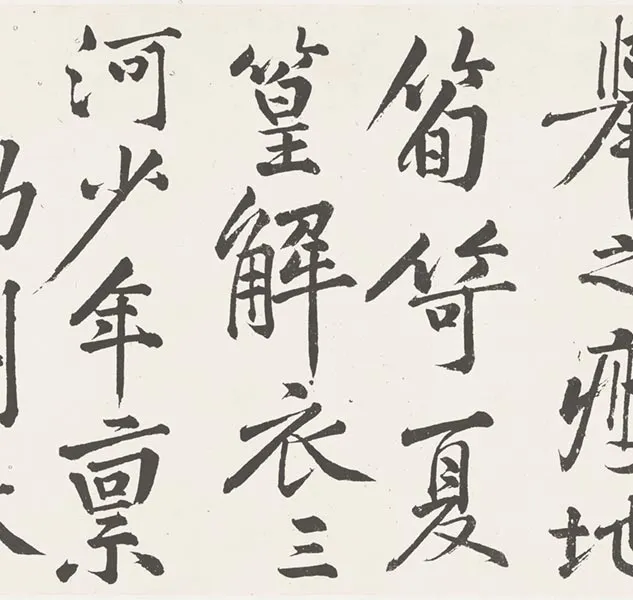 之地
筍笴夏
篁解衣三
河少年禀